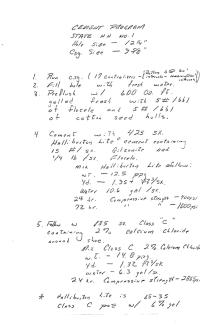 CEMENT PROGRAM
STATE H.H. NO. 1
Hole Size - 12 1/4"
Csg Size - 9 5/8"
1. Run csg. (17 centralizers -
2. Fill hole with fresh water.
3. Preflush w/ 600 cu. ft.
gelled fresh with 5#/bbl
of flocele and 5#/bbl
of cotton seed hulls.
4. Cement with 425 sx.
Halliburton Lite cement containing
15 #/sx. Gilsonite and
1/4 lb/sx. Flocele.
mix Halliburton Lite as follows:
wt. - 12.5 ppg
Yd. - ft³/sx.
water 10.6 gal/sx.
24 hr. Compressive strength -
72 hr. " -
5. Follow w/ sx Class "C"
containing 2% Calcium Chloride
around shoe.
Mix Class C 2% Calcium Chloride
wt. - 14.8 ppg
Yd. - 1.32 ft³/sx
water - 6.3 gal/sx.
24 hr. Compressive strength -
* Halliburton Lite is 65-35
Class C poz w/ 6% gel